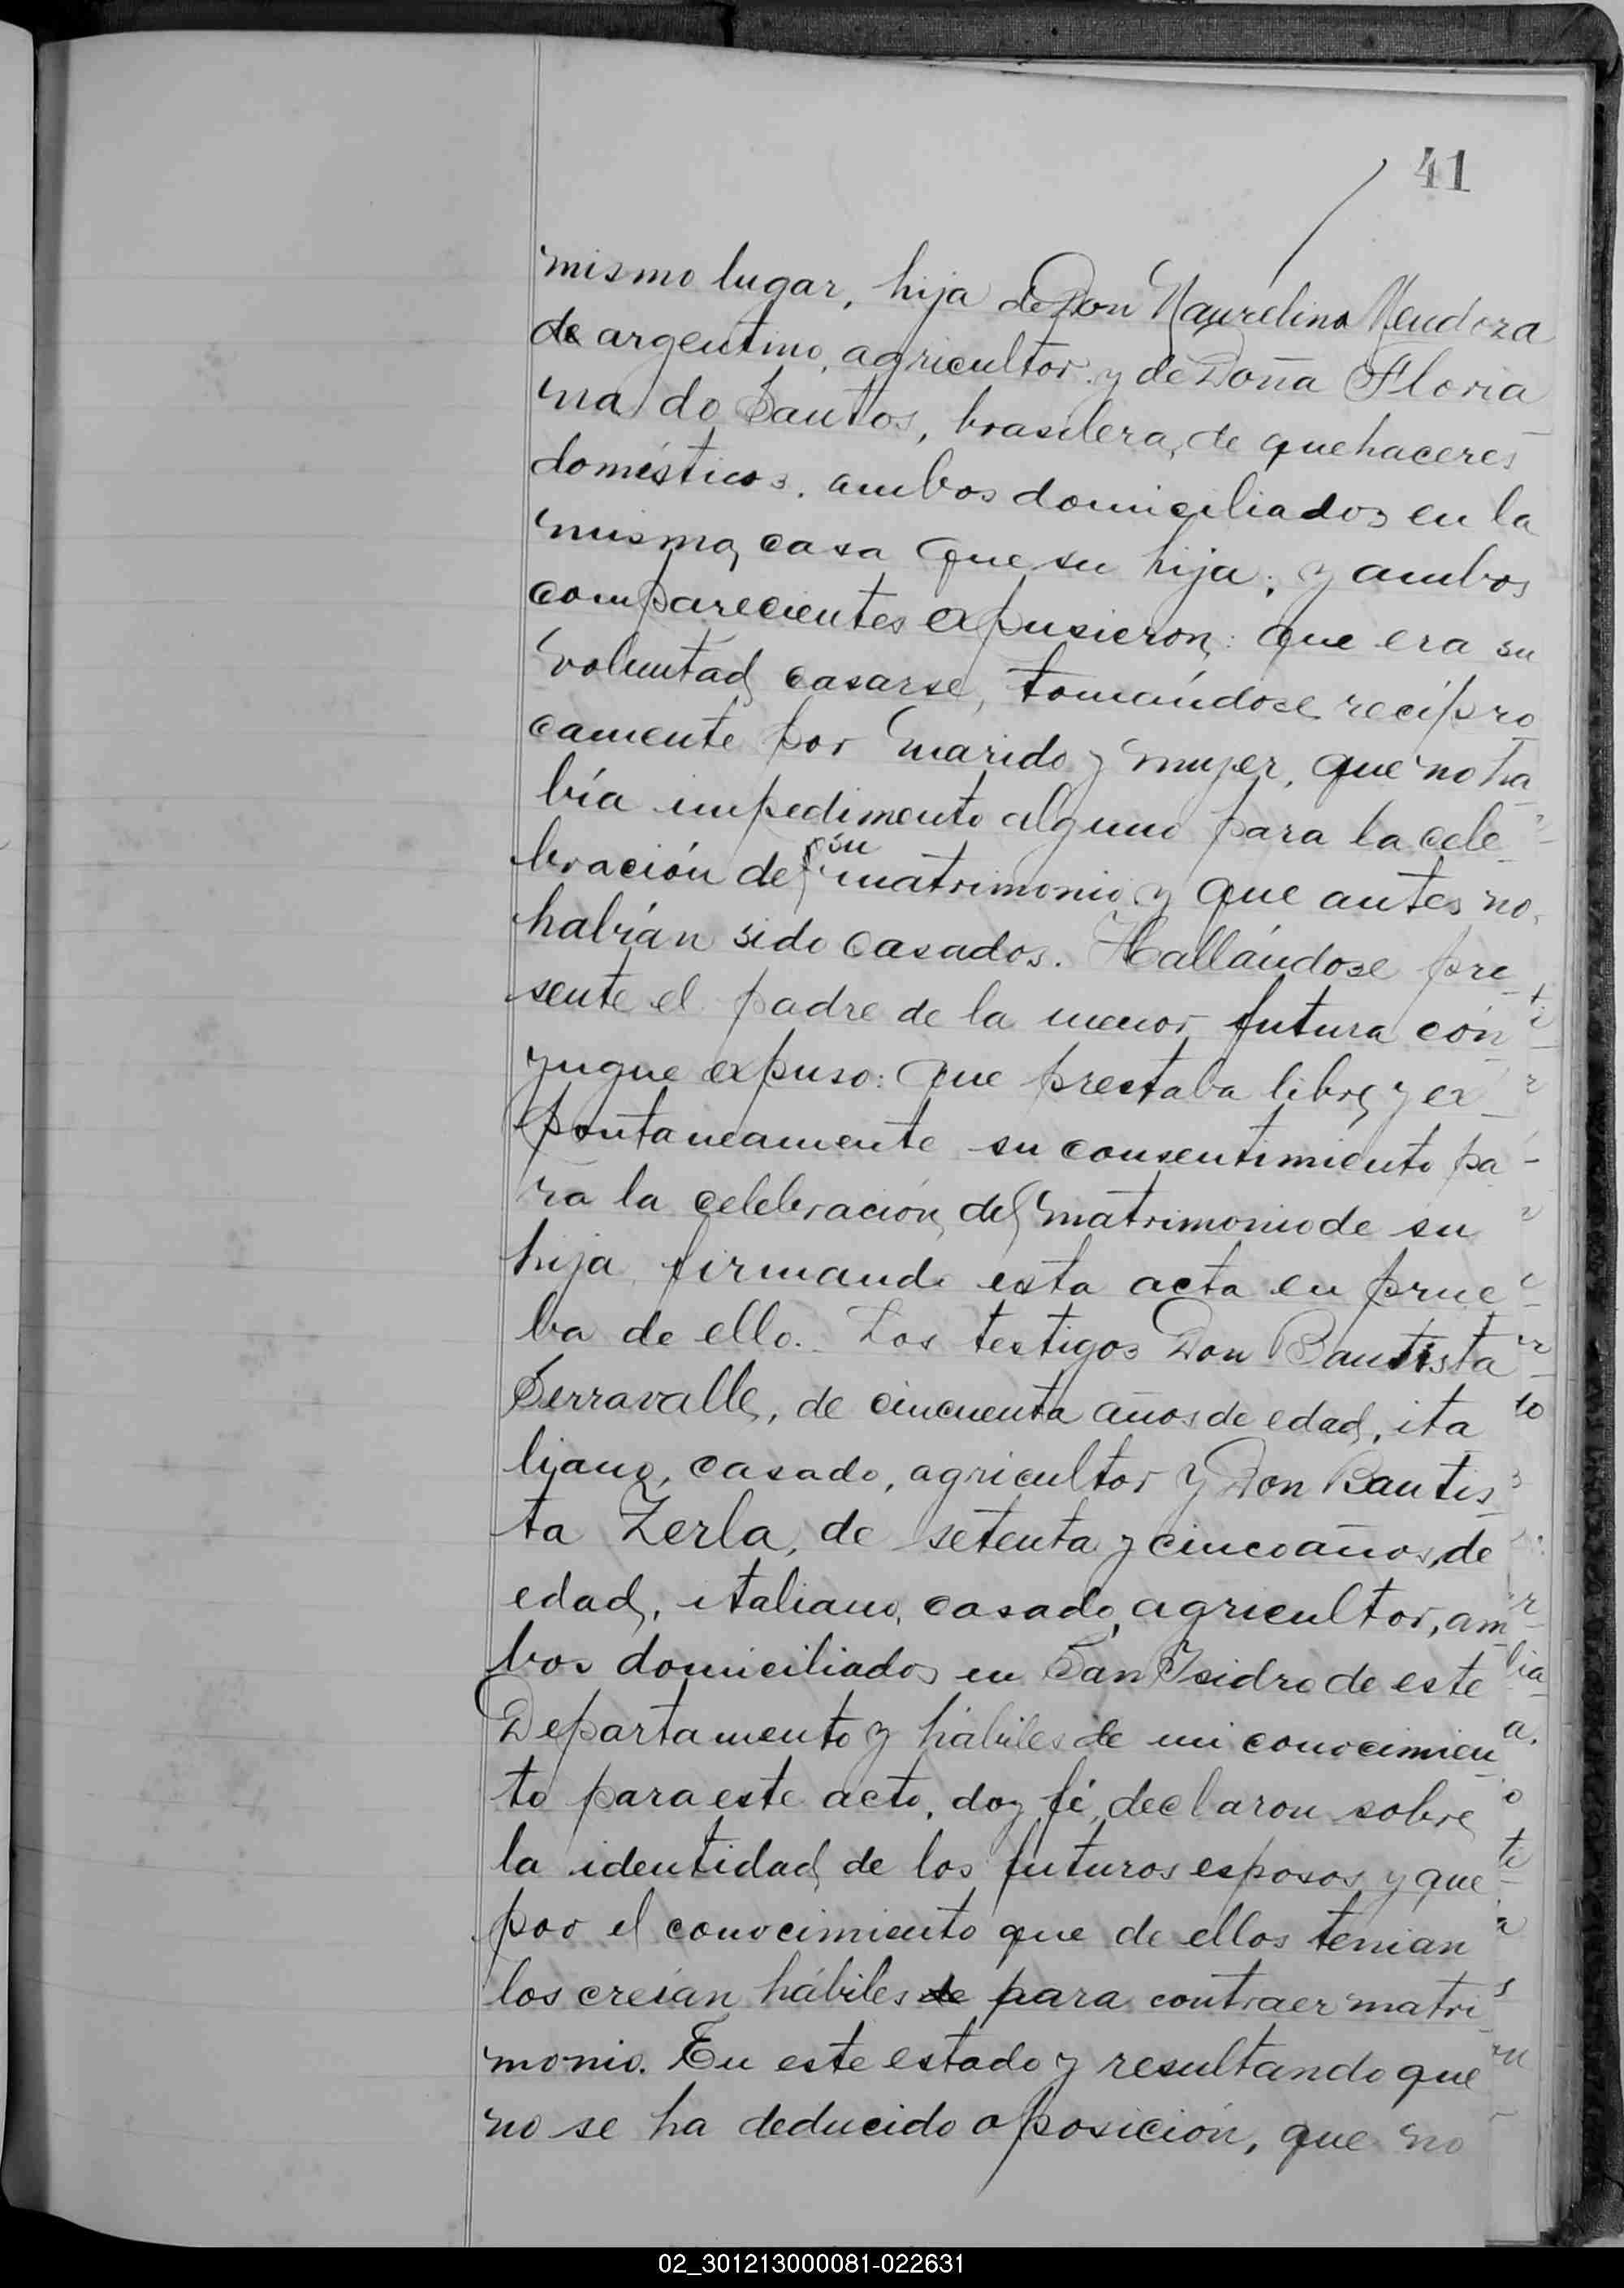 41
mismo lugar, hija de Don Maurelino Mendoza
de argentino, agricultor y de Doña Floria
na do Santos, brasilera, de quehaceres
domésticos, ambos domiciliados en la
misma casa que su hija; y ambos
comparecientes expusieron: que era su
voluntad casarse, tomándose recípro
camente por marido y mujer, que no ha
bía impedimento alguno para la cele
bración de su matrimonio y que antes no
habían sido casados. Hallándose pre
sente el padre de la menor futura cón
yugue expuso: que prestaba libre y ex
pontaneamente su consentimiento pa
ra la celebración del matrimonio de su
hija firmando esta acta en prue
ba de ello. Los testigos Don Bautista
Serravalle, de cincuenta años de edad, ita
liano, casado, agricultor y Don Bautis
ta Zerla, de setenta y cinco años de
edad, italiano, casado, agricultor, am
bos domiciliados en San Isidro de este
Departamento y hábiles de mi conocimien
to para este acto, doy fé, declaron sobre
la identidad de los futuros esposos y que
por el conocimiento que de ellos tenian
los creían hábiles de para contraer matri
monio. En este estado y resultando que
no se ha deducido oposición, que no
02_301213000081-022631